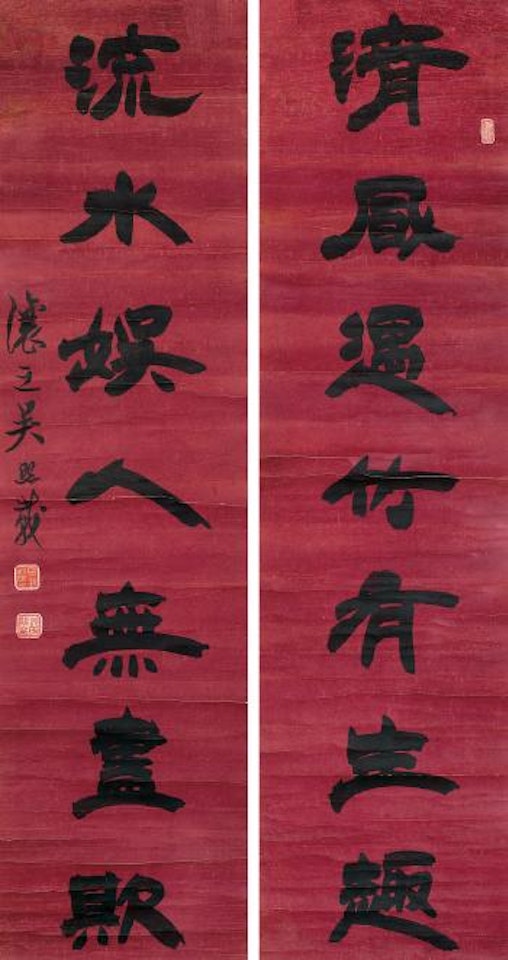 清風遇竹有生趣
流水娛人無盡
讓之吳熙載